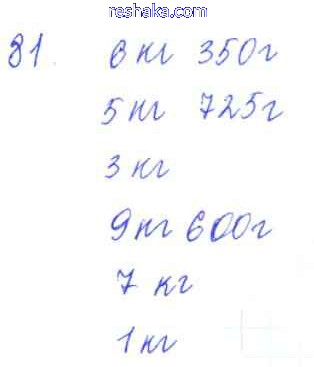 reshaka.com
81. 6 кг 350г
5 кг 725г
3 кг
9кг 600г
7 кг
1 кг